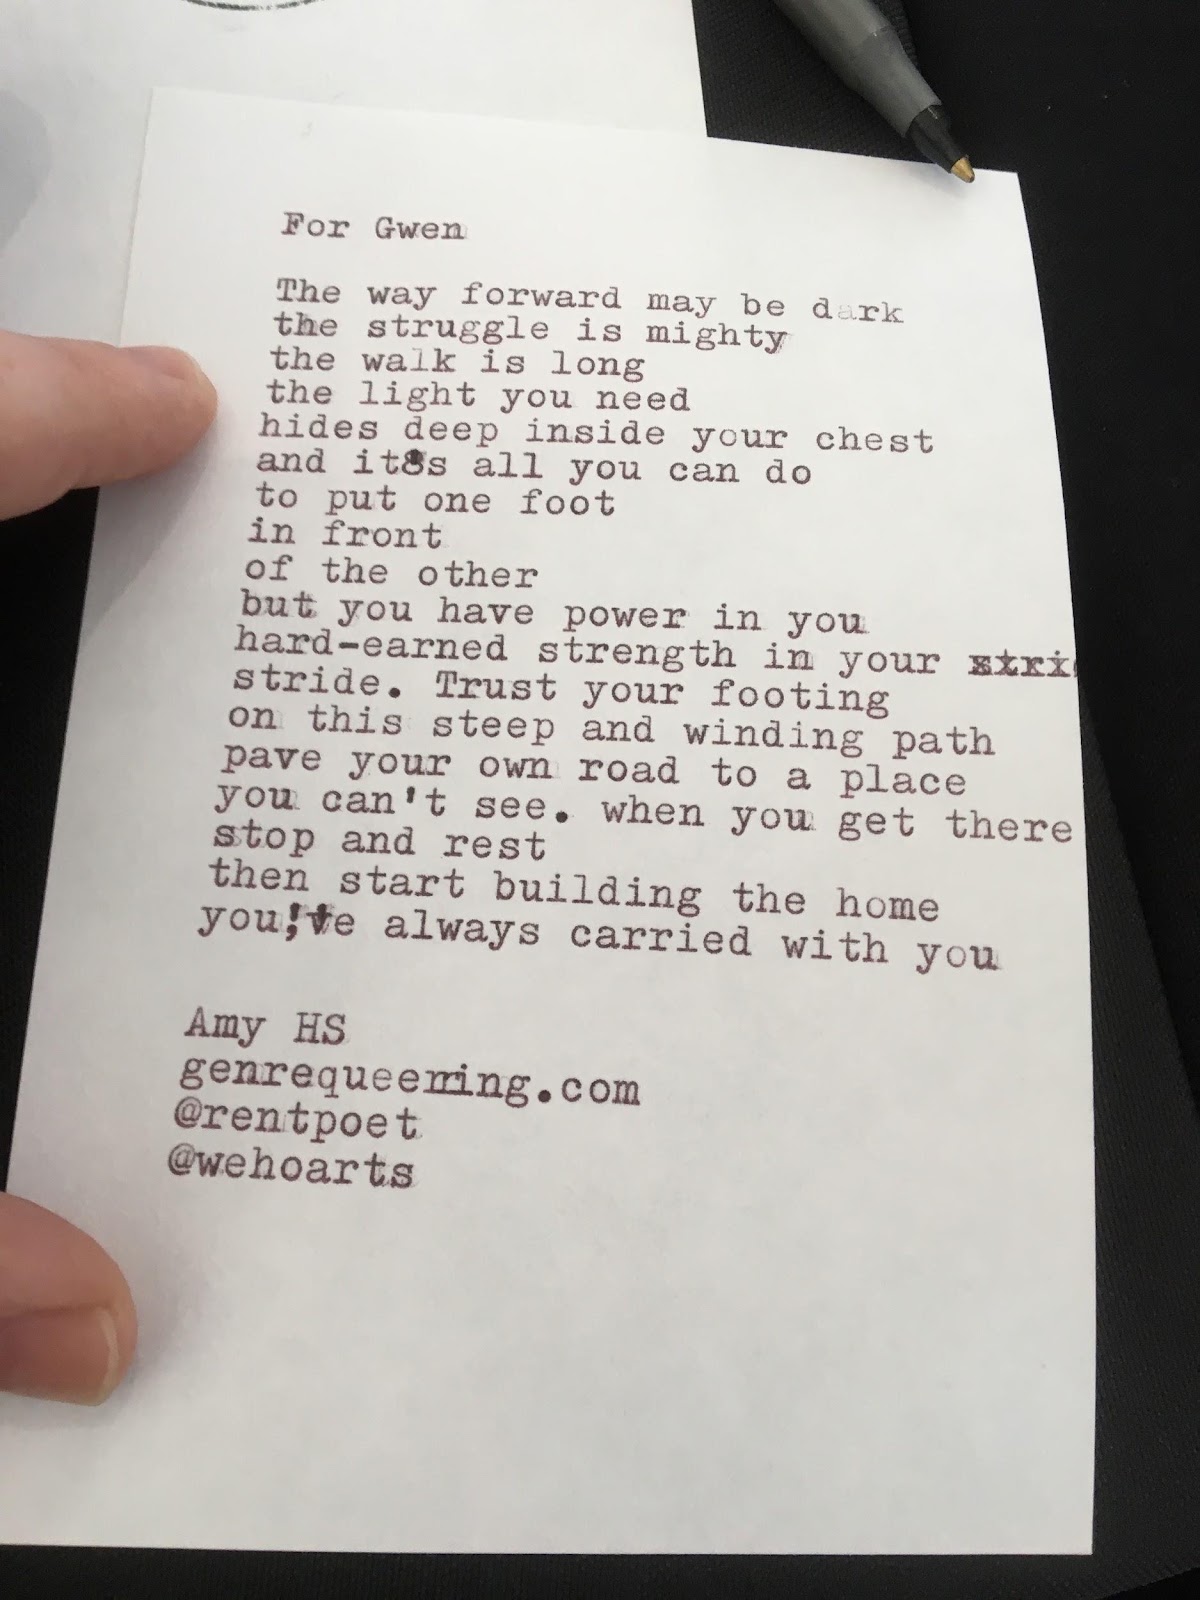 For Gwen
The way forward may be dark
the struggle is mighty
the walk is long
the light you need
hides deep inside your chest
and it8s all you can do
to put one foot
in front
of the other
but you have power in you
hard-earned strength in your stri
stride. Trust your footing
on this steep and winding path
pave your own road to a place
you can't see. when you get there
stop and rest
then start building the home
you've always carried with you
Amy HS
genrequeering.com
@rentpoet
@wehoarts